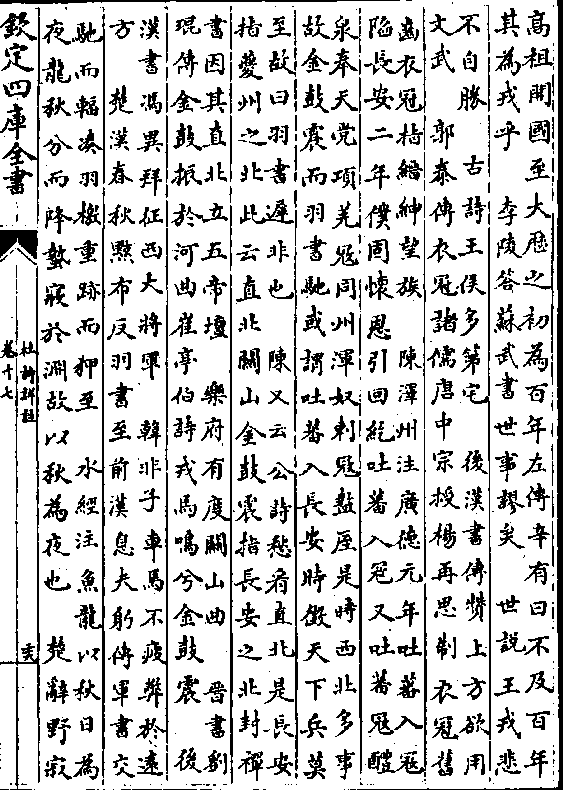 高祖開國至大厯之初為百年左傳辛有曰不及百年
其為戎乎　李陵答蘇武書世事謬矣　世說王戎悲
不自勝　古詩王侯多第宅　後漢書傳贊上方欲用
文武　郭泰傳衣冠諸儒唐中宗授楊再思制衣冠舊
齒衣冠指縉紳望族　陳澤州注廣德元年吐蕃入寇
陷長安二年僕固懷恩引回紇吐蕃入寇又吐蕃寇醴
泉奉天党項羌寇同州渾奴剌寇盩厔是時西北多事
故金鼓震而羽書馳或謂吐蕃入長安時徵天下兵莫
至故曰羽書遲非也　陳又云公詩愁看直北是長安
指夔州之北此云直北關山金鼓震指長安之北封禪
書因其直北立五帝壇　樂府有度關山曲　晉書劉
琨傳金鼓振於河曲崔亭伯詩戎馬鳴兮金鼓震　後
漢書馮異拜征西大將軍　韓非子車馬不疲弊於遠
方　楚漢春秋黥布反羽書至前漢息夫躬傳軍書交
馳而輻湊羽檄重跡而狎至　水經注魚龍以秋日為
夜龍秋分而降蟄寢於淵故以秋為夜也　楚辭野寂
欽定四庫全書
杜詩詳註
卷十七